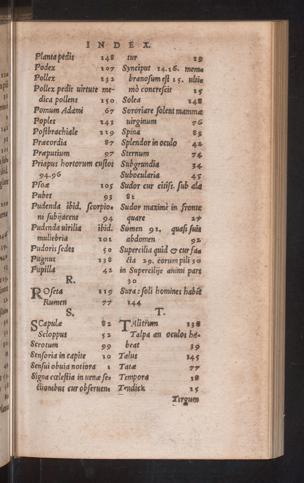 INDEX.
Planta pedis 148
Podex 107
Pollex 132
Pollex pedis uirtute me-
dica pollens 150
Pomum Adami 67
Poples 143
Postbrachiale 119
Præcordia 87
Præputium 97
Priapus hortorum custos
94.96
Psoæ 105
Pubes 93
Pudenda ibid. scorpio
ni subijacens 94
Pudenda uirilia ibid.
muliebria 101
Pudoris sedes 50
Pugnus 138
Pupilla 42
R.
Roseta 119
Rumen 77
S.
Scapulæ 82
Scloppus 52
Scrotum 99
Sensoria in capite 10
Sensui obuia notiora 1
Signa cœlestia in uenæ se-
ctionibus cur obseruen-
tur 19
Synciput 14.16. mem-
branosum est 15. ultim
mò concrescit 15
Solea 148
Sororiare solent mammæ
uirginum 76
Spina 83
Splendor in oculo 42
Sternum 74
Subgrundia 34
Subocularia 45
Sudor cur citiss. sub ala
81
Sudor maximè in fronte
quare 27
Sumen 92. quasi suis
abdomen 92
Supercilia quid & cur fa-
cta 29. eorum pili 30
in Supercilijs animi pars
30
Sura: soli homines habet
144
T.
Talitrum 138
Talpa an oculos ha-
beat 39
Talus 145
Tatæ 77
Tempora 18
Tendices 25
Tergum